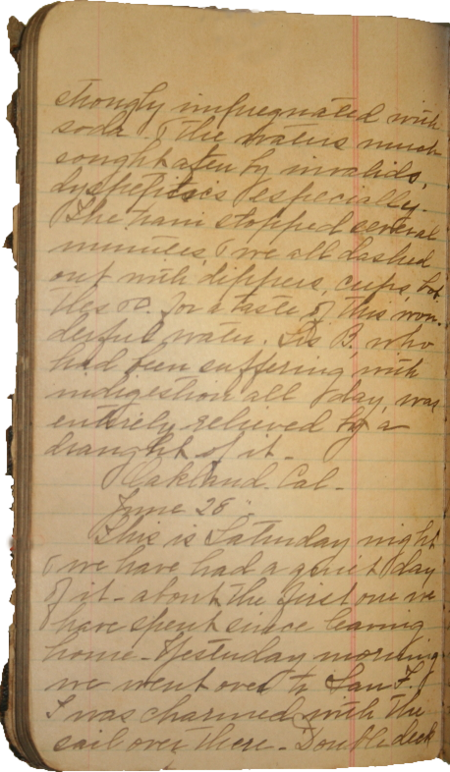 strongly impregnated with
soda & the waters much
sought after by invalids,
dyspeptics especially.
The train stopped several
minutes, & we all dashed
out with dippers, cups, bot-
tles &c. for a taste of this won-
derful water. Sis B, who
had been suffering with
indigestion all day, was
entirely relieved by a
draught of it -
Oakland. Cal -
June 28
This is Saturday night
& we have had a quiet day
of it - about the first one we
have spent since leaving
home - Yesterday morning
we went over to San F. &
I was charmed with the
sail over there - Double deck